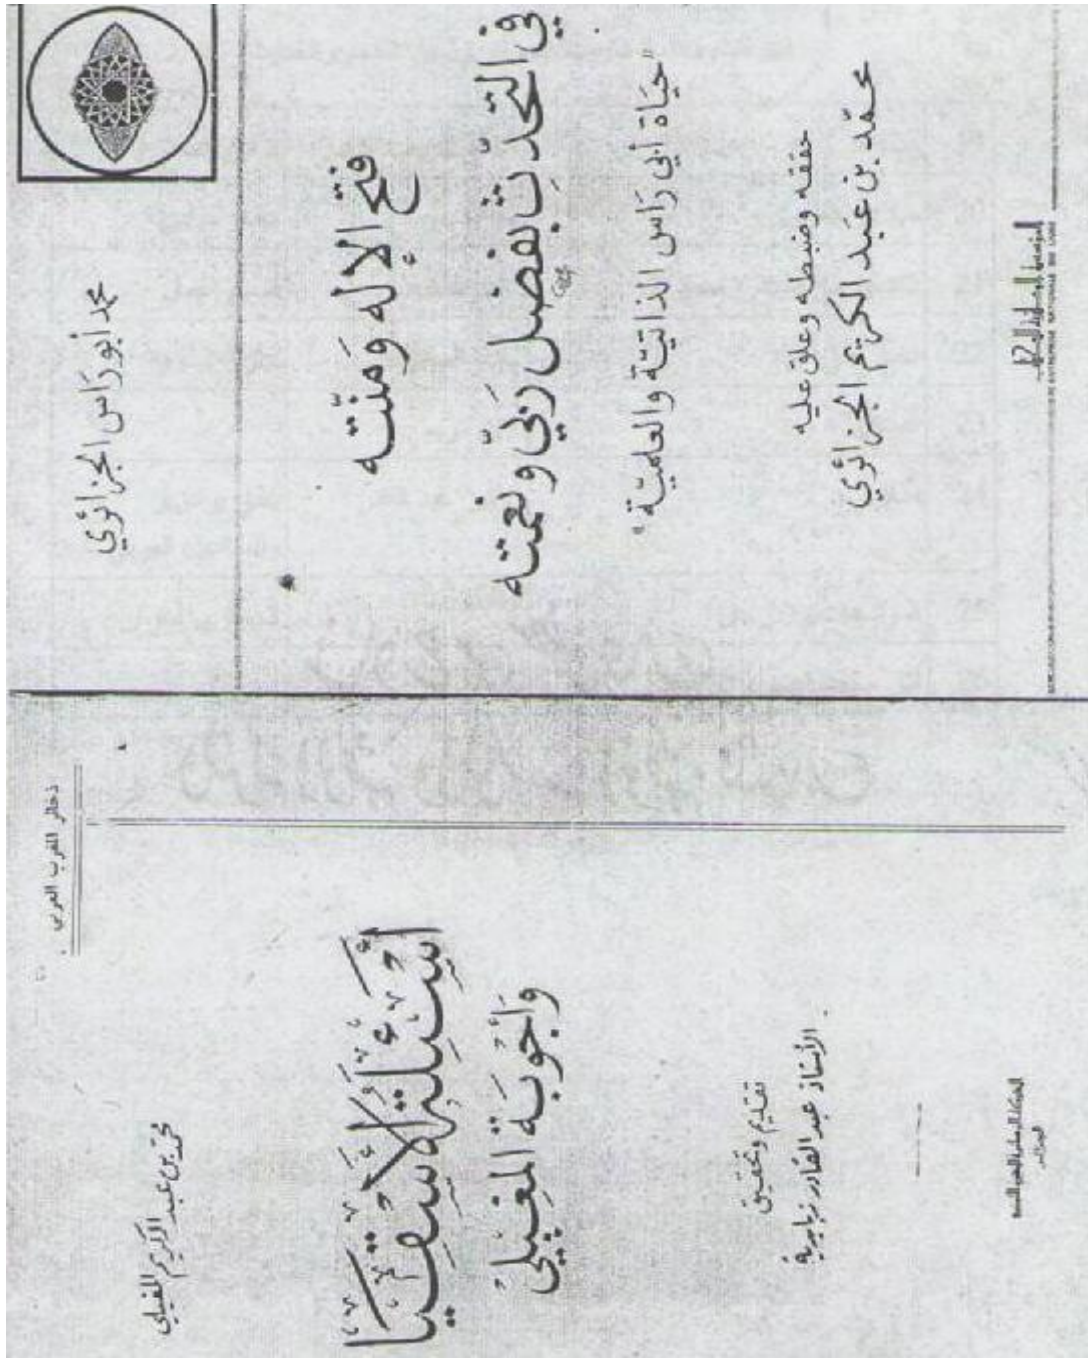 محمد أبو راس الجزائري
فتح الإله ومنّته
في التحدّث بفضل ربّي ونعمته
"حياة أبي راس الذاتيّة والعلميّة"
حققه وضبطه وعلق عليه
محمّد بن عبد الكريم الجزائري
المؤسسة الوطنية للكتاب
ENTREPRISE NATIONALE DU LIVRE
ذخائر المغرب العربي
محمّد بن عبد الكريم المغيلي
أَسْئِلَةُ الأَسْقِيَا
وَأَجْوِبَة المَغِيلِي
تقديم وتحقيق
الأستاذ عبد القادر زبايدية
الجزائر